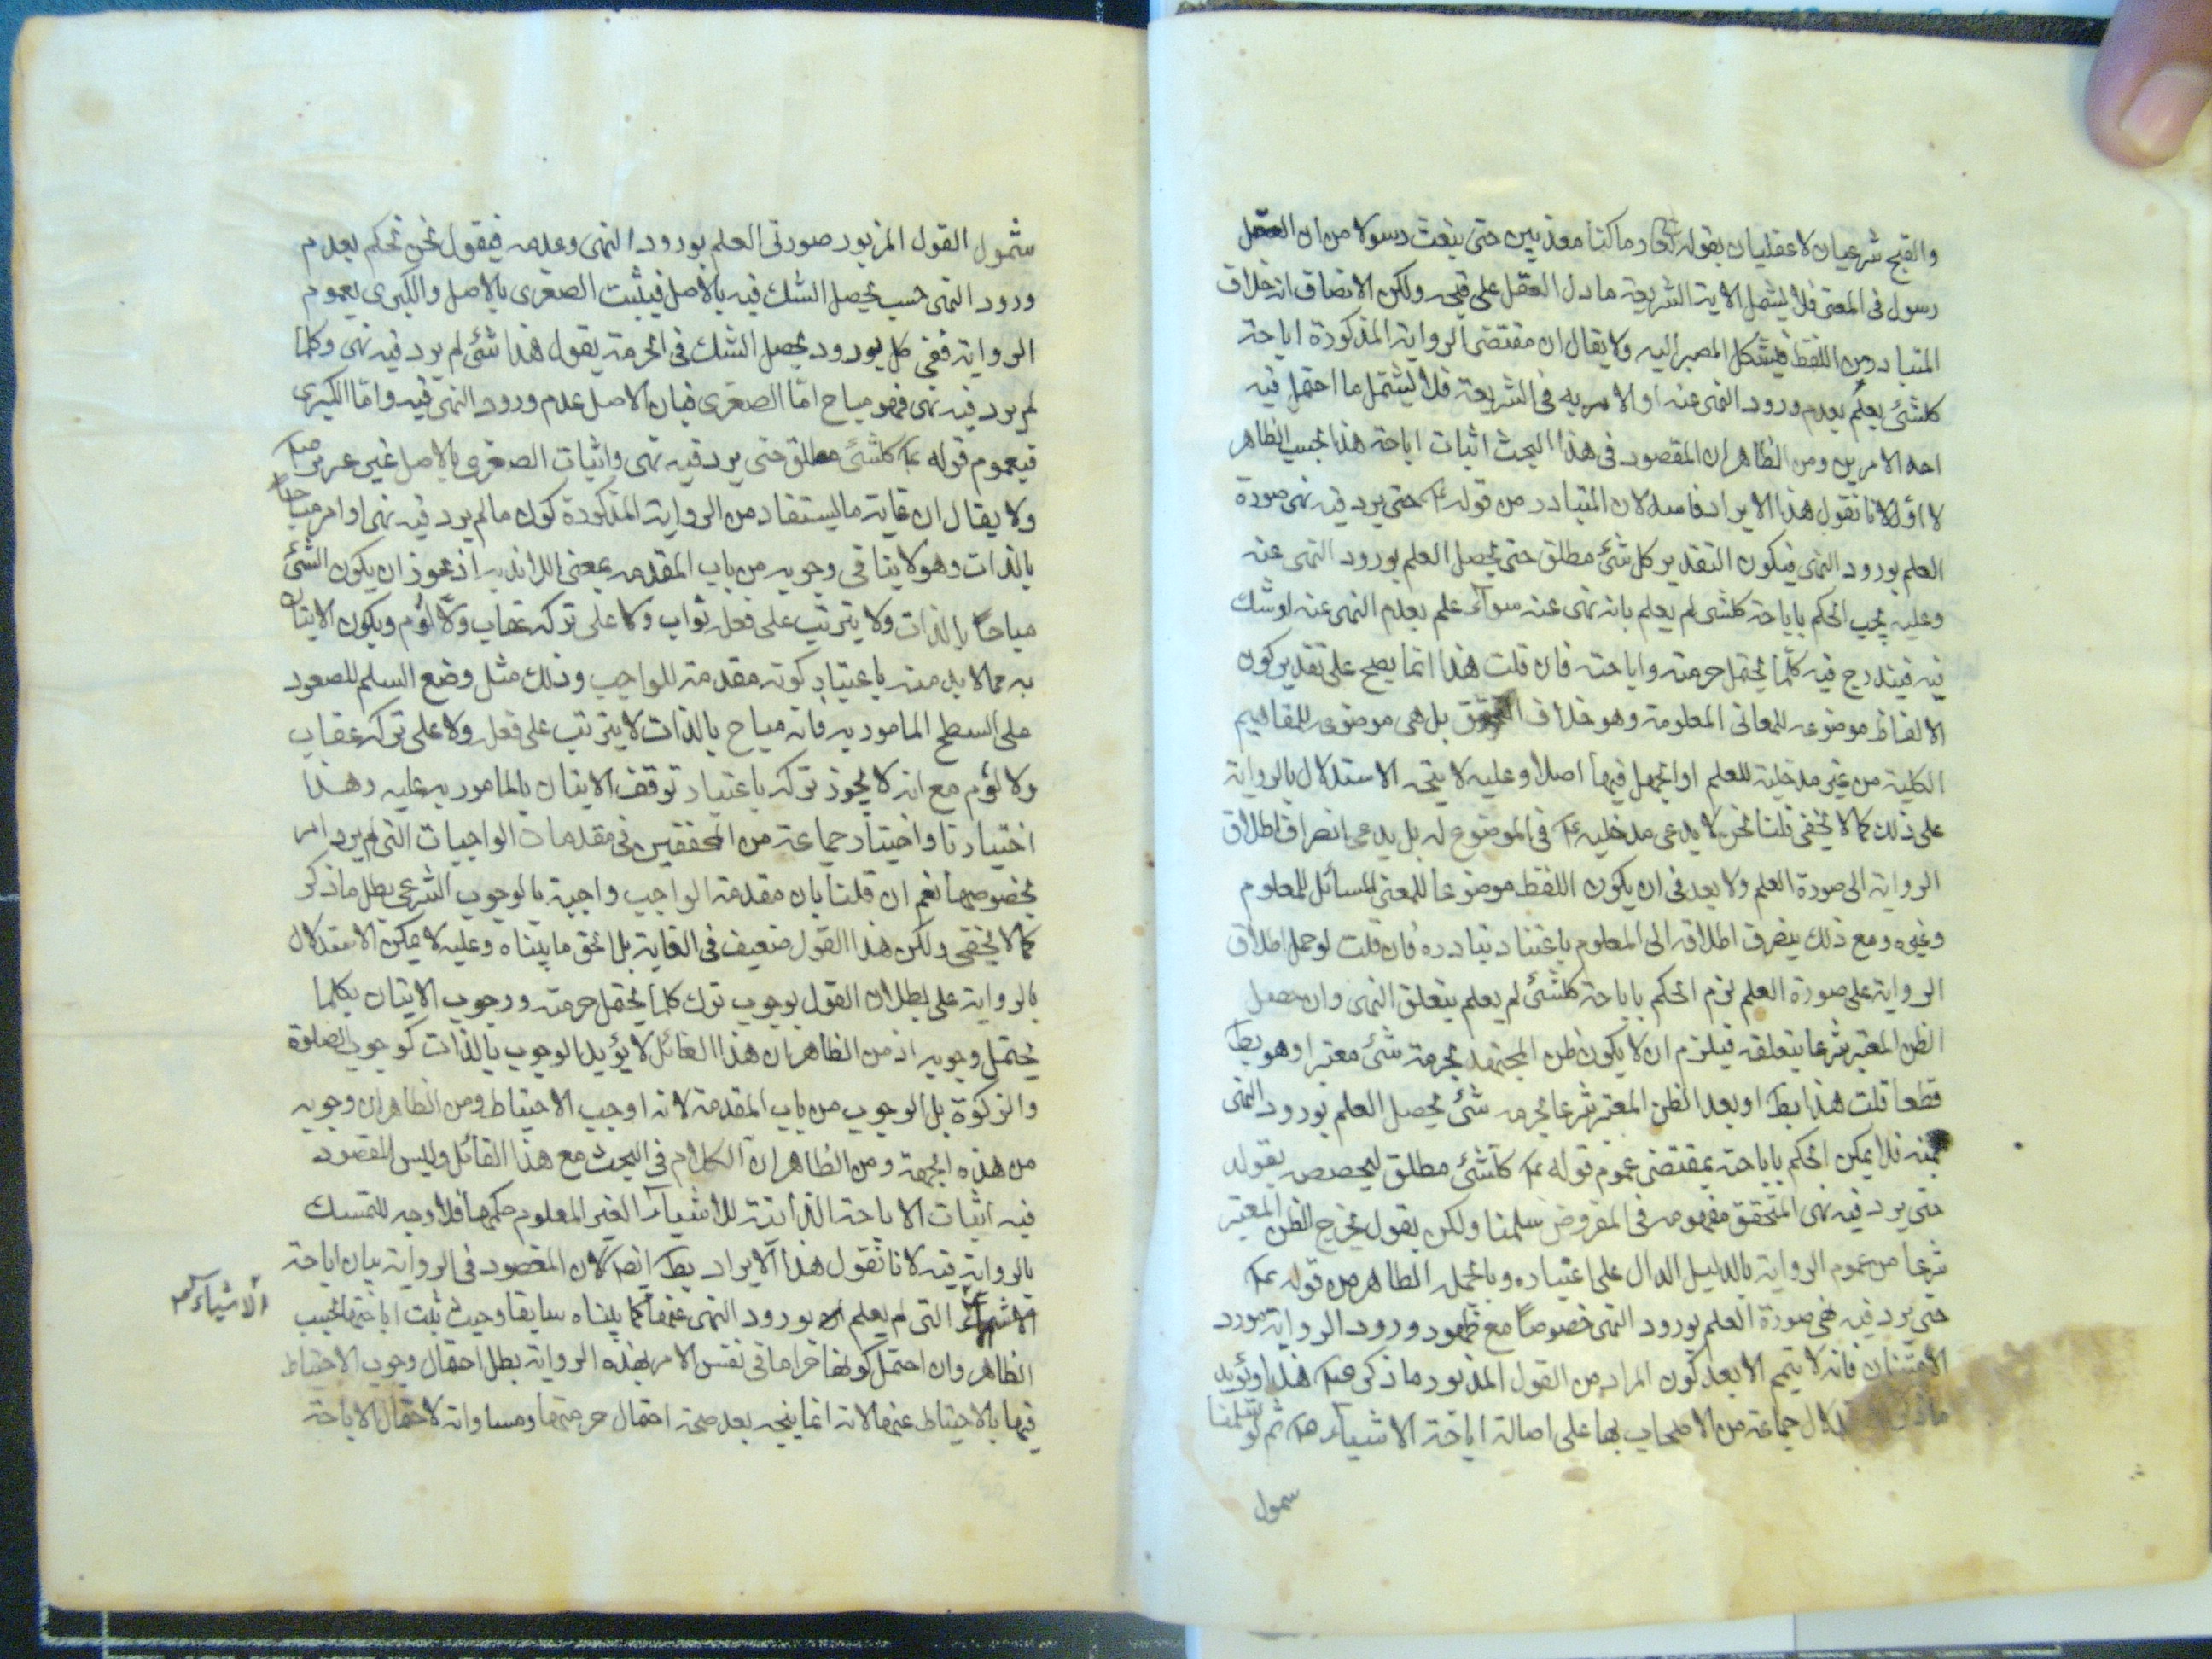 والقبح شرعيان لا عقليان بقوله تعا وما كنا معذبين حتى نبعث رسولا من ان العقل
رسول فى المعنى فلا يشمل الاية الشريفة ما دل العقل على قبحه ولكن الانصاف انه خلاف
المتبادر من اللفظ فيشكل المصير اليه ولا يقال ان مقتضى الرواية المذكورة اباحة
كلشئ يعلم بعدم ورود النهى عنه او الامر به فى الشريعة فلا يشتمل ما احتمل فيه
احد الامرين ومن الظاهر ان المقصود فى هذا البحث اثبات اباحة هذا بحسب الظاهر
لانا نقول هذا الايراد فاسد لان المتبادر من قوله ع حتى يرد فيه نهى صورة
العلم بورود النهى فيكون التقدير كل شئ مطلق حتى يحصل العلم بورود النهى عنه
وعليه يجب الحكم باباحة كلشى لم يعلم بانه نهى عنه سواء علم بعدم النهى عنه او شك
فيه فيندرج فيه كلما يحتمل حرمته واباحته فان قلت هذا انما يصح على تقدير كون
الالفاظ موضوعه للمعانى المعلومة وهو خلاف التحقيق بل هى موضوعه للمفاهيم
الكلية من غير مدخلية للعلم او الجهل فيها اصلا وعليه لا يتجه الاستدلال بالرواية
على ذلك كما لا يخفى قلنا نحن لا ندعى مدخليه فى الموضوع له بل يدعى انصراف اطلاق
الرواية الى صورة العلم ولا بعد فى ان يكون اللفظ موضوعا للمعنى الشامل للمعلوم
وغيره ومع ذلك ينصرف اطلاقه الى المعلوم باعتبار تبادره فان قلت لو حمل اطلاق
الرواية على صورة العلم لزم الحكم باباحة كلشئ لم يعلم بتعلق النهى وان حصل
الظن المعتبر شرعا بتعلقه فيلزم ان لا يكون ظن المجتهد بحرمة شئ معتبرا وهو بط
قطعا قلت هذا بط اذ بعد الظن المعتبر شرعا بحرمه شئ يحصل العلم بورود النهى
عنه فلا يمكن الحكم باباحته بمقتضى عموم قوله ع كلشئ مطلق ليخصص بقوله
حتى يرد فيه نهى المتحقق مفهومه فى المفروض سلمنا ولكن نقول يخرج الظن المعتبر
شرعا من عموم الرواية بالدليل الدال على اعتباره وبالجمله الظاهر من قوله ع
حتى يرد فيه نهى صورة العلم بورود النهى خصوصا مع ظهور ورود الرواية مورد
الامتنان فانه لا يتم الا بعد كون المراد من القول المذبور ما ذكر هذا ويؤيد
ما ذكر جماعة من الاصحاب بها على اصالة اباحة الاشياء ثم لو سلمنا
شمول
شمول القول المزبور صورتى العلم بورود النهى وعدمه فيقول نحن نحكم بعدم
ورود النهى حسب يحصل الشك فيه بالاصل فيثبت الصغرى بالاصل والكبرى بعموم
الرواية ففى كل مورد يحصل الشك فى الحرمة يقول هذا شئ لم يرد فيه نهى وكلما
لم يرد فيه نهى فهو مباح اما الصغرى فبان الاصل عدم ورود النهى فيه واما الكبرى
فبعموم قوله ع كلشئ مطلق حتى يرد فيه نهى واثبات الصغرى بالاصل غير عزيز
ولا يقال ان غاية ما يستفاد من الرواية المذكورة كون ما لم يرد فيه نهى او امر مباحا
بالذات وهو لا ينافى وجوبه من باب المقدمه بمعنى اللابديه اذ يجوز ان يكون الشئ
مباحا بالذات ولا يترتب على فعله ثواب ولا على تركه عقاب ولا لؤم ويكون الاتيان
به مما لا بد منه باعتبار كونه مقدمة للواجب وذلك مثل وضع السلم للصعود
على السطح المامور به فانه مباح بالذات لا يترتب على فعله ولا على تركه عقاب
ولا لؤم مع انه لا يجوز تركه باعتبار توقف الاتيان بالمامور به عليه وهذا
اختيارنا واختيار جماعة من المحققين فى مقدمات الواجبات التى لم يرد امر
بخصوصها نعم ان قلنا بان مقدمة الواجب واجبة بالوجوب الشرعى بطل ما ذكر
كما لا يخفى ولكن هذا القول ضعيف فى الغاية بل الحق ما بيناه وعليه لا يمكن الاستدلال
بالرواية على بطلان القول بوجوب ترك كلما يحتمل حرمته ووجوب الاتيان بكلما
يحتمل وجوبه اذ من الظاهر ان هذا القائل لا يؤيد الوجوب بالذات كوجوب الصلوة
والزكوة بل الوجوب من باب المقدمة لانه اوجب الاحتياط ومن الظاهر ان وجوبه
من هذه الجهة ومن الظاهر ان الكلام فى البحث مع هذا القائل وليس المقصود
فيه اثبات الاباحة الذاتية للاشياء الغير المعلوم حكمها فلا وجه للتمسك
بالرواية فيه لانا نقول هذا الايراد بط ايضا لان المقصود فى الرواية بيان اباحة
الاشياء التى لم يعلم بورود النهى عنها كما بيناه سابقا وحيث ثبت اباحتها بحسب
الاشياء
الظاهر وان احتمل كونها حراما فى نفس الامر بهذه الرواية بطل احتمال وجوب الاحتياط
فيها بالاحتياط عنها لانه انما يتجه بعد صحة احتمال حرمتها ومساواته لاحتمال الاباحة